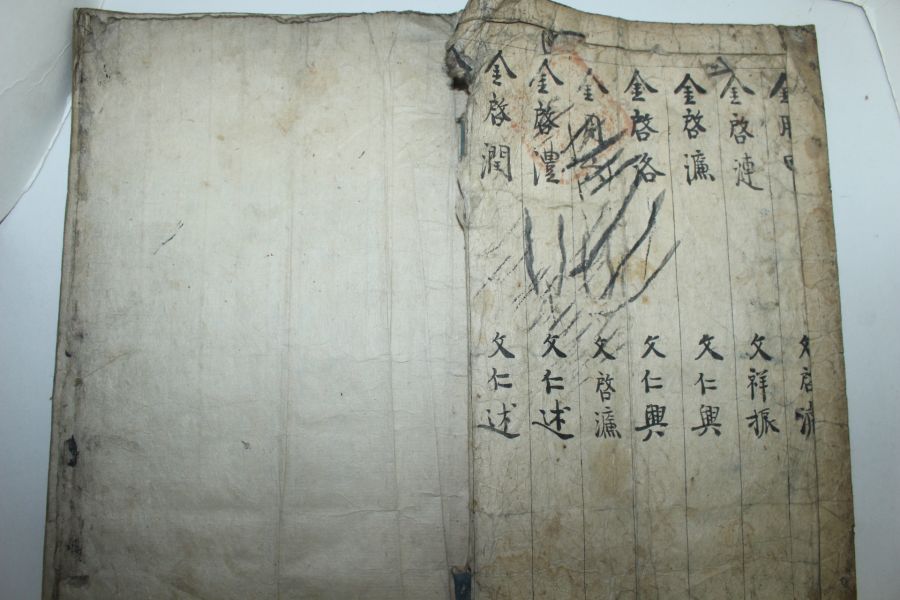 金
文啓濂
金啓漣
文祥振
金啓濂
文仁興
金啓洛
文仁興
金
文啓濂
金啓澧
文仁述
金啓潤
文仁述